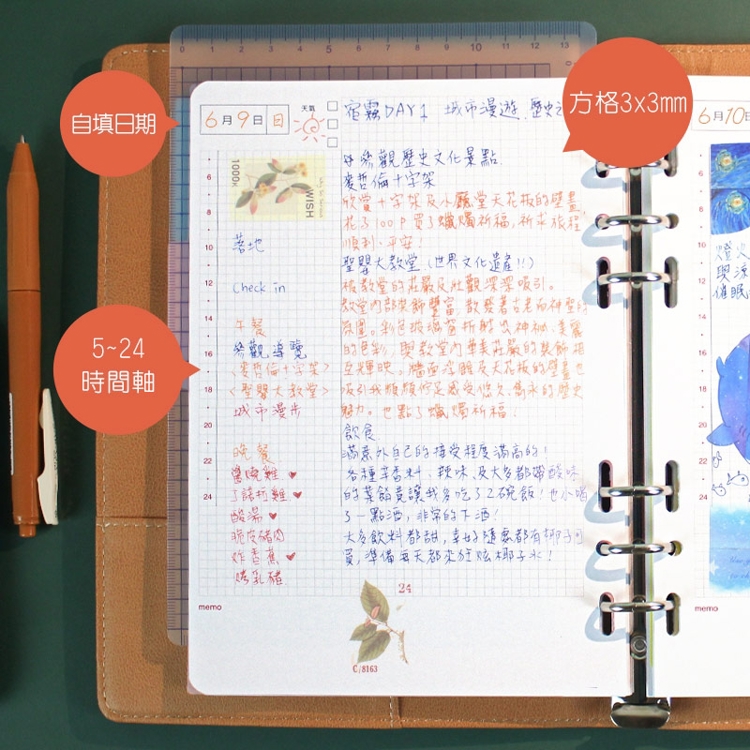 自填日期
方格3x3mm
5~24
時間軸
6月9日 日
天氣
宿霧DAY1 城市漫遊.歷史
6月10日
參觀歷史文化景點
麥哲倫十字架
欣賞十字架及小廳堂天花板的壁畫
花了100P買了蠟燭祈福,祈求旅程
順利、平安!
聖嬰大教堂(世界文化遺產!!)
被教堂的莊嚴及壯觀深深吸引。
教堂內部裝飾豐富,散發著古老而神聖的
氛圍。彩色玻璃窗折射出神秘、美麗
的色彩,與教堂內華美莊嚴的裝飾相
互輝映。牆面浮雕及天花板的壁畫也
吸引我頻頻佇足感受悠久、雋永的歷史
魅力。也點了蠟燭祈福.
飲食
滿意外自己的接受程度滿高的!
各種辛香料、辣味、及大多都帶酸味
的菜餚竟讓我多吃了2碗飯!也小喝
了一點酒,非常的下酒!
大多飲料都甜,幸好隨處都有椰子可
買,準備每天都來狂炫椰子水!
落地
check in
午餐
參觀導覽
<麥哲倫十字架>
<聖嬰大教堂>
城市漫步
晚餐
醬醃雞
酸湯
脆皮豬肉
炸香蕉
烤乳豬
6
8
10
12
14
16
18
20
22
24
1000K
WISH
24
memo
C/8163
memo